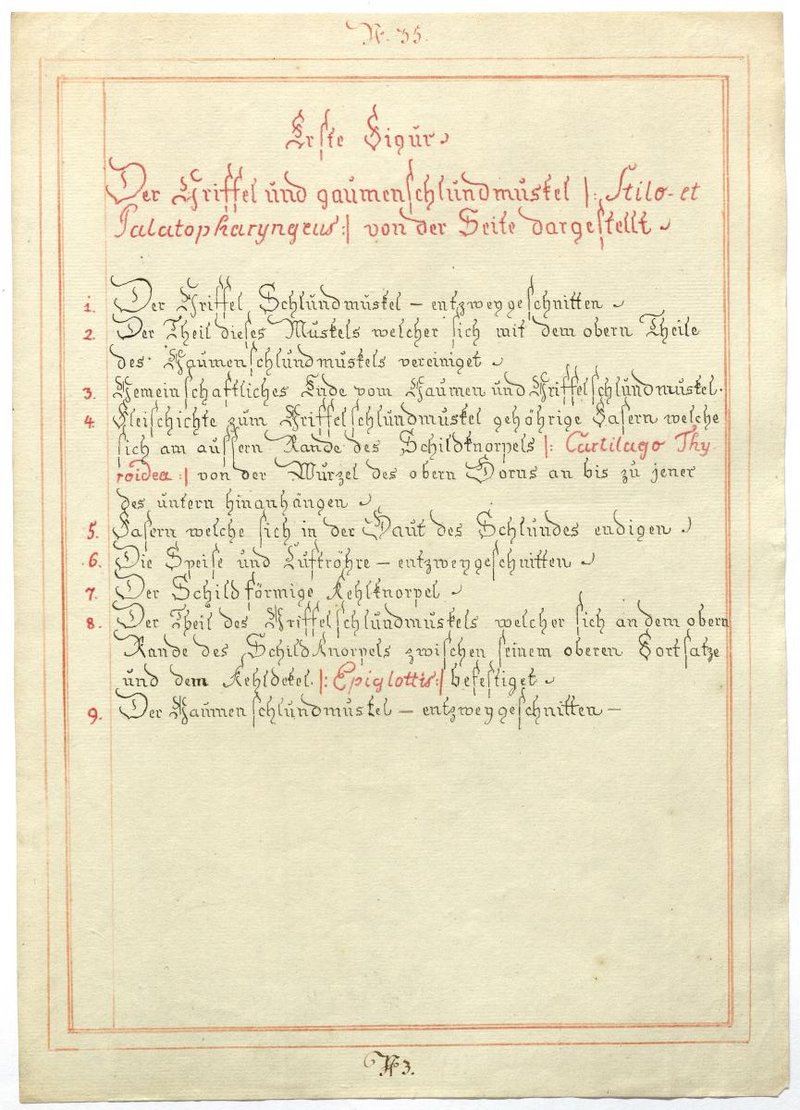 N. 35.
Erste Figur
Der Griffel und gaumenschlundmuskel |: Stilo- et
Palatopharyngeus :| von der Seite dargestellt
1. Der Griffel Schlundmuskel – entzweygeschnitten
2. Der Theil dieses Muskels welcher sich mit dem obern Theile
des Gaumenschlundmuskels vereiniget
3. Gemeinschaftliches Ende vom Gaumen und Griffelschlundmuskel.
4. Gleischichte zum Griffelschlundmuskel gehöhrige Fasern welche
sich am äussern Rande des Schildknorpels |: Cartilago Thy
roidea :| von der Wurzel des obern Horns an bis zu jener
des untern hinanhängen
5. Fasern welche sich in der Haut des Schlundes endigen
6. Die Speise und Luftröhre – entzweygeschnitten
7. Der Schildförmige Kehlknorpel
8. Der Theil des Griffelschlundmuskels welcher sich an dem obern
Rande des Schildknorpels zwischen seinem oberen Fortsatze
und dem Kehldekel |: Epiglottis :| befestiget
9. Der Gaumenschlundmuskel – entzweygeschnitten –
N 3.